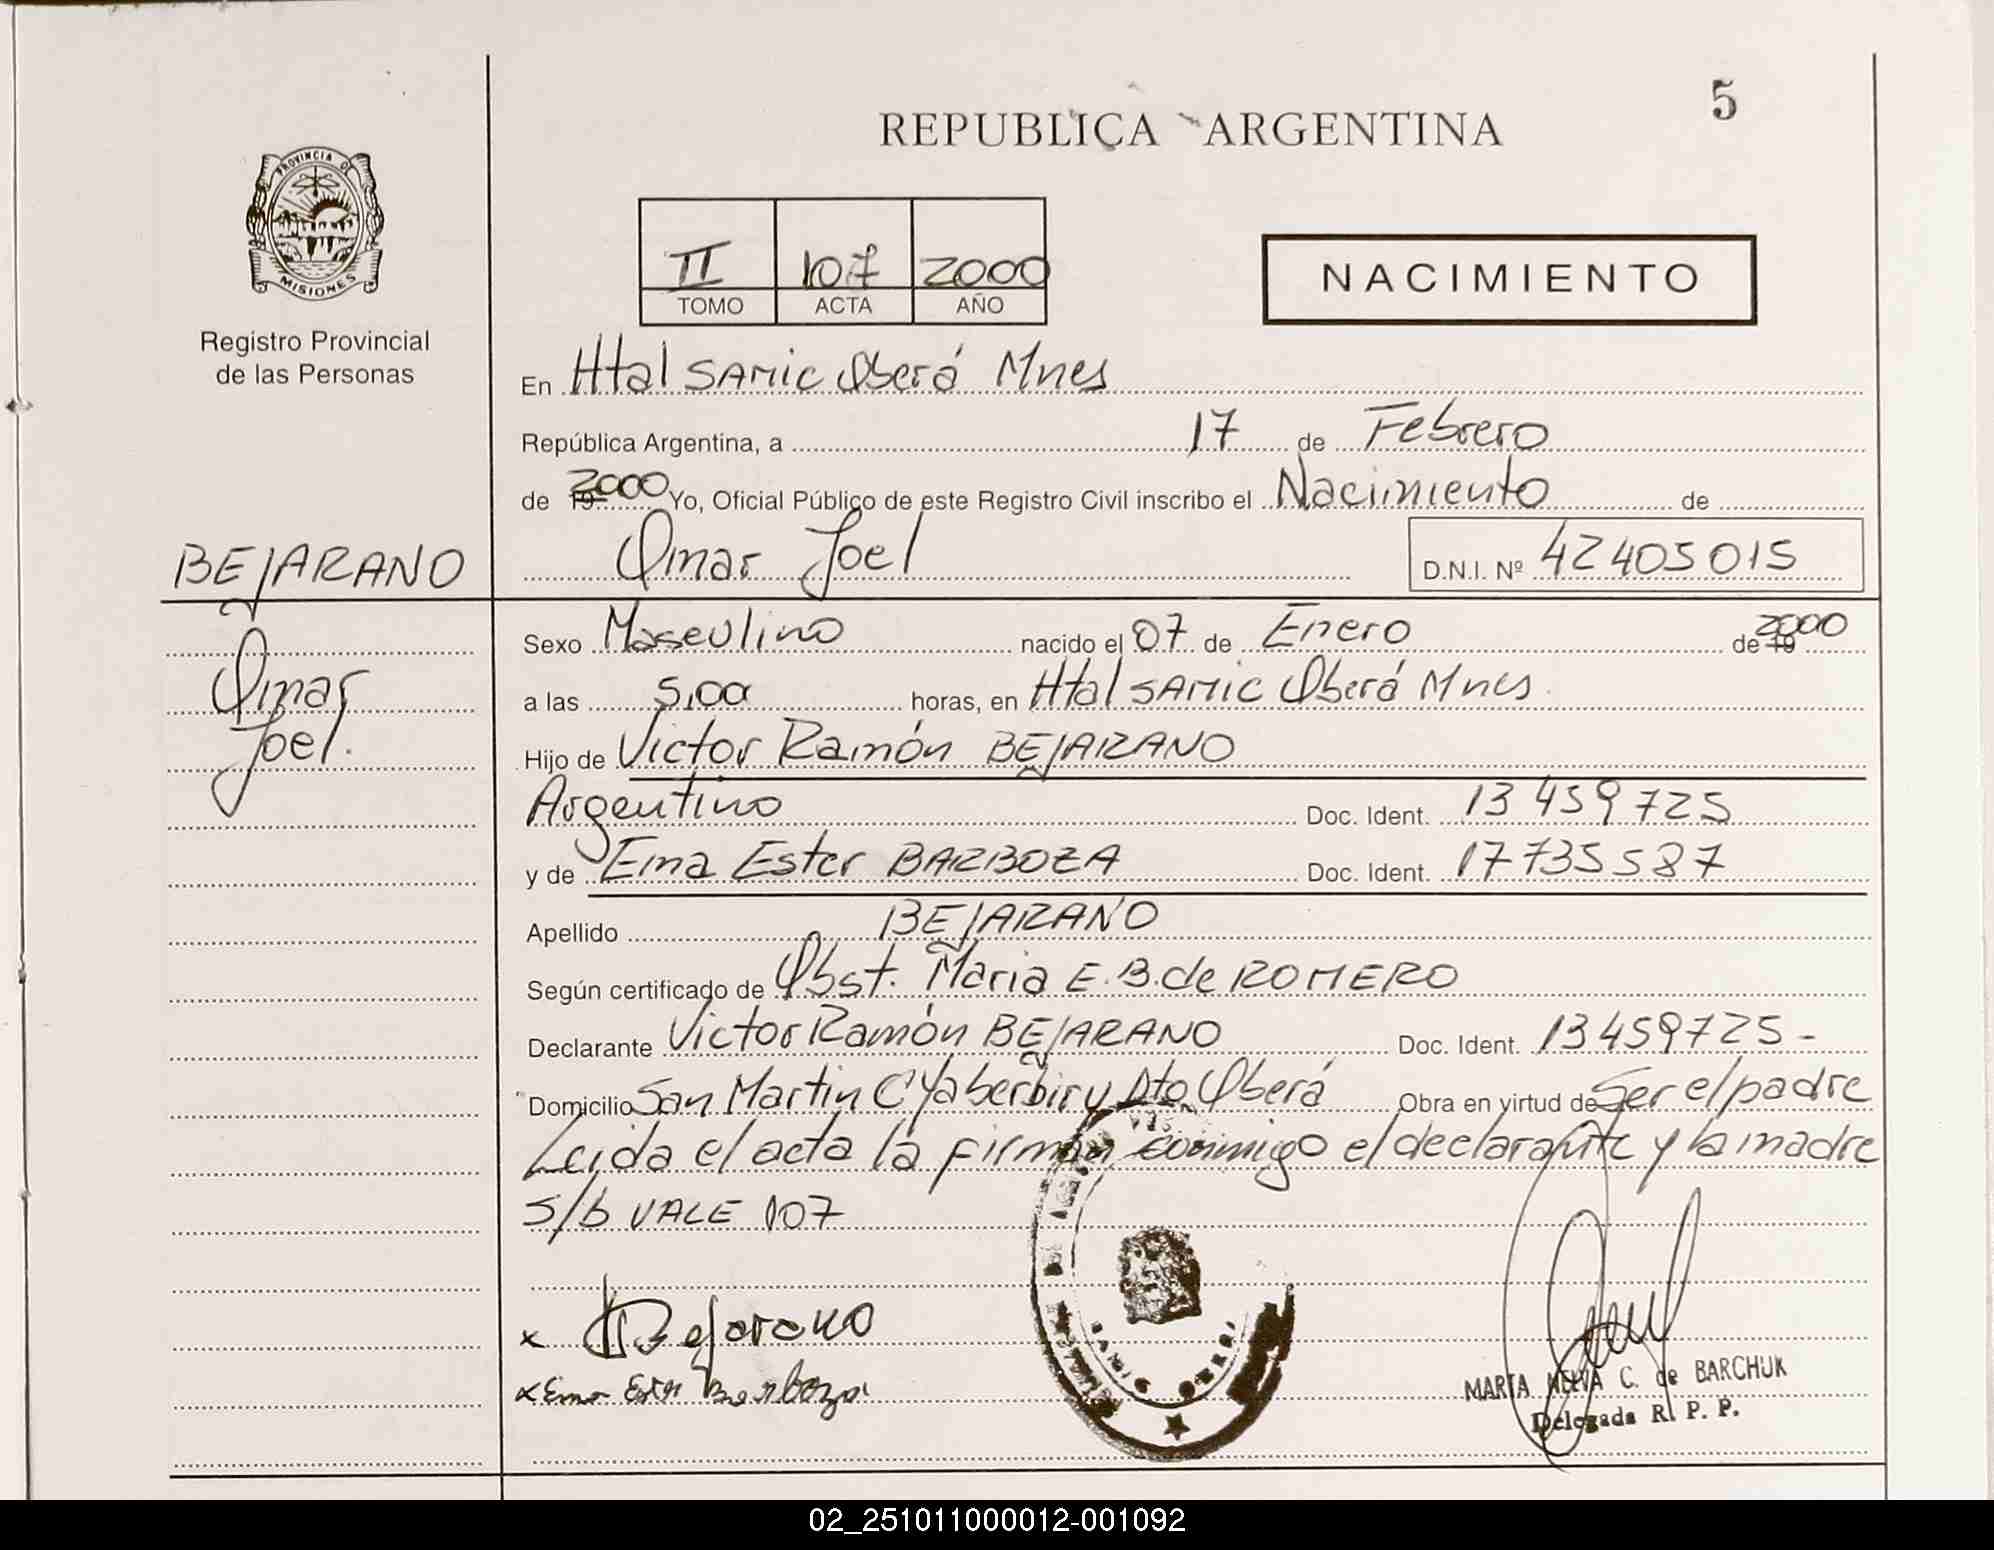 5
REPUBLICA ARGENTINA
PROVINCIA DE
MISIONES
Registro Provincial
de las Personas
II 107 2000
TOMO ACTA AÑO
NACIMIENTO
En Htal SAMIC Oberá Mnes
República Argentina, a 17 de Febrero
de 19 2000 Yo, Oficial Público de este Registro Civil inscribo el Nacimiento de
BEJARANO
Omar Joel D.N.I. Nº 42405015
Omar
Joel.
Sexo Masculino nacido el 07 de Enero de 19 2000
a las 5,00 horas, en Htal SAMIC Oberá Mnes.
Hijo de Victor Ramón BEJARANO
Argentino Doc. Ident. 13459725
y de Ema Ester BARBOZA Doc. Ident. 17735587
Apellido BEJARANO
Según certificado de Obst. Maria E.B. de ROMERO
Declarante Victor Ramón BEJARANO Doc. Ident. 13459725-
Domicilio San Martin C° Yaberbiry Dto Oberá Obra en virtud de Ser el padre
Leida el acta la firman conmigo el declarante y la madre
S/b VALE 107
x Bejarano
x Ema Ester Barboza
MARIA NELVA C. de BARCHUK
Delegada R. P. P.
02_251011000012-001092